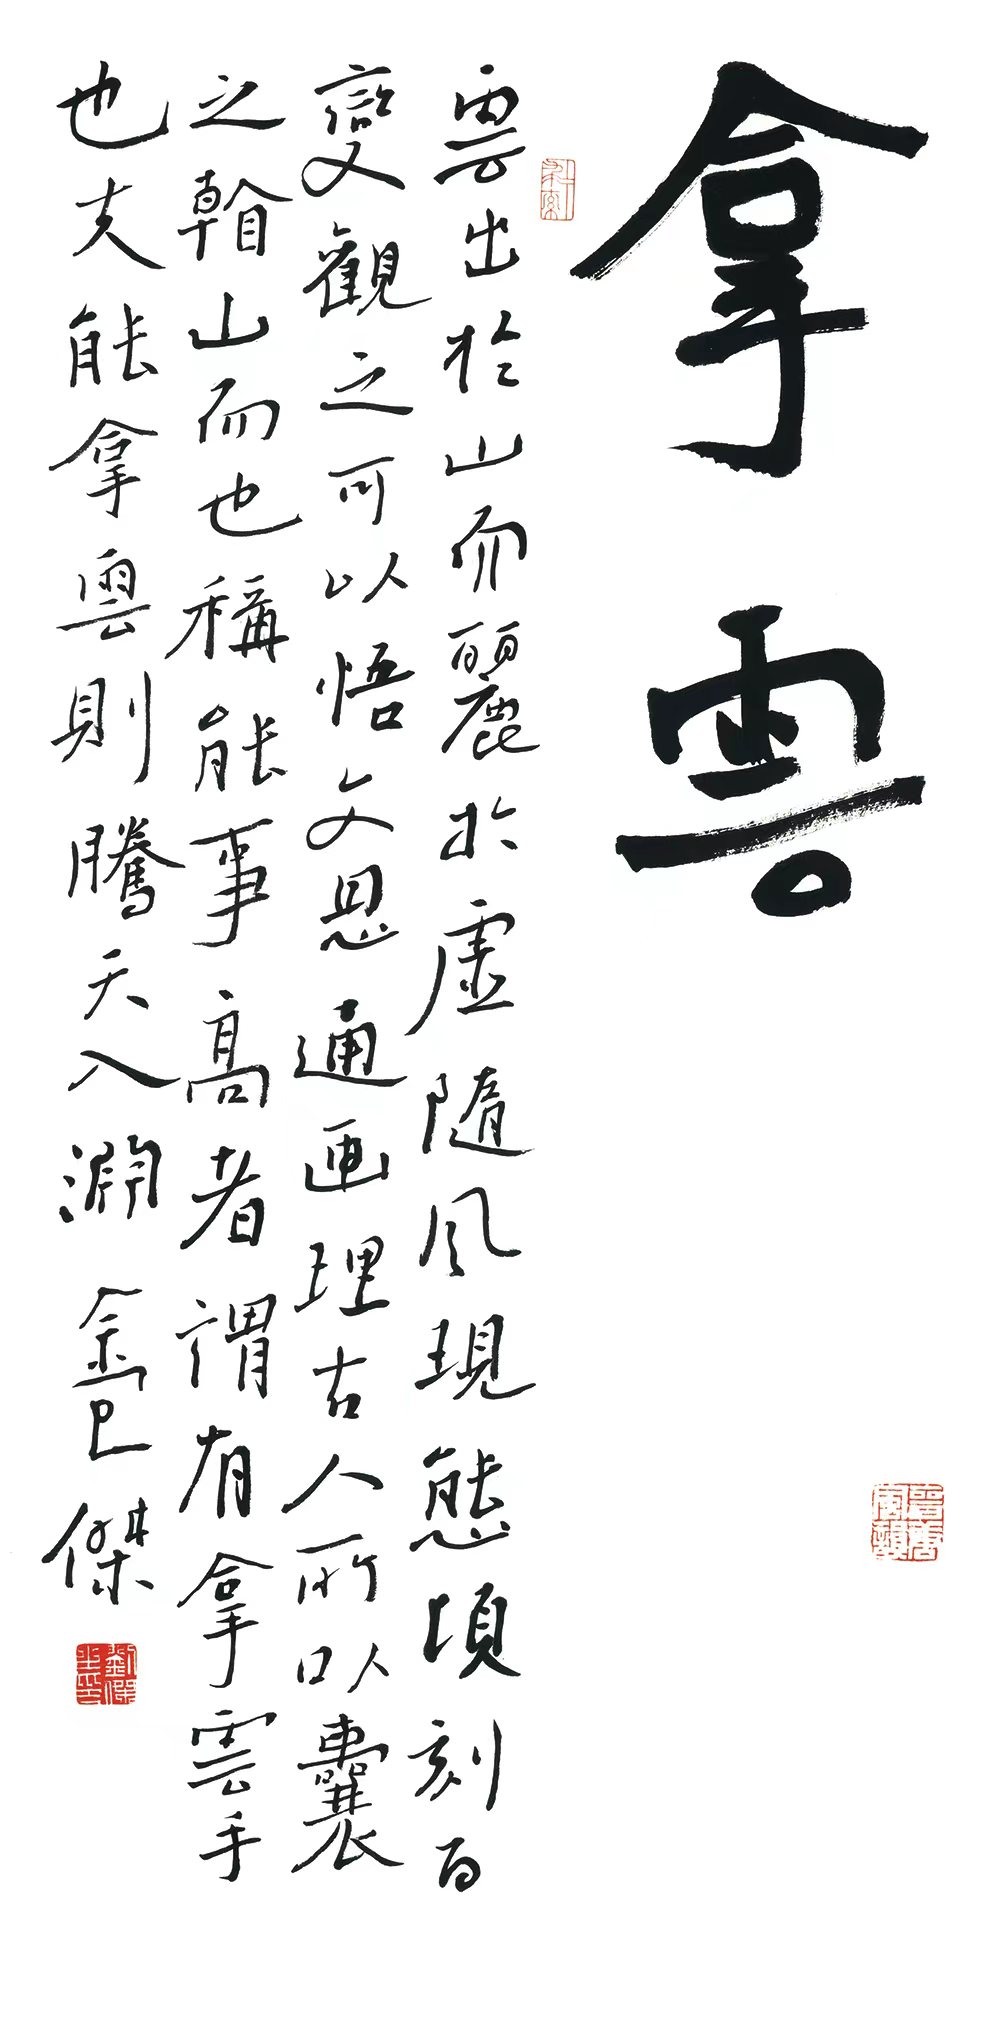 拿雲
雲出於山而麗於虛隨風現態頃刻百
變觀之可以悟文思通画理古人所以囊
之山而也稱能事高者謂有拿雲手
也夫能拿雲則騰天入淵 傑